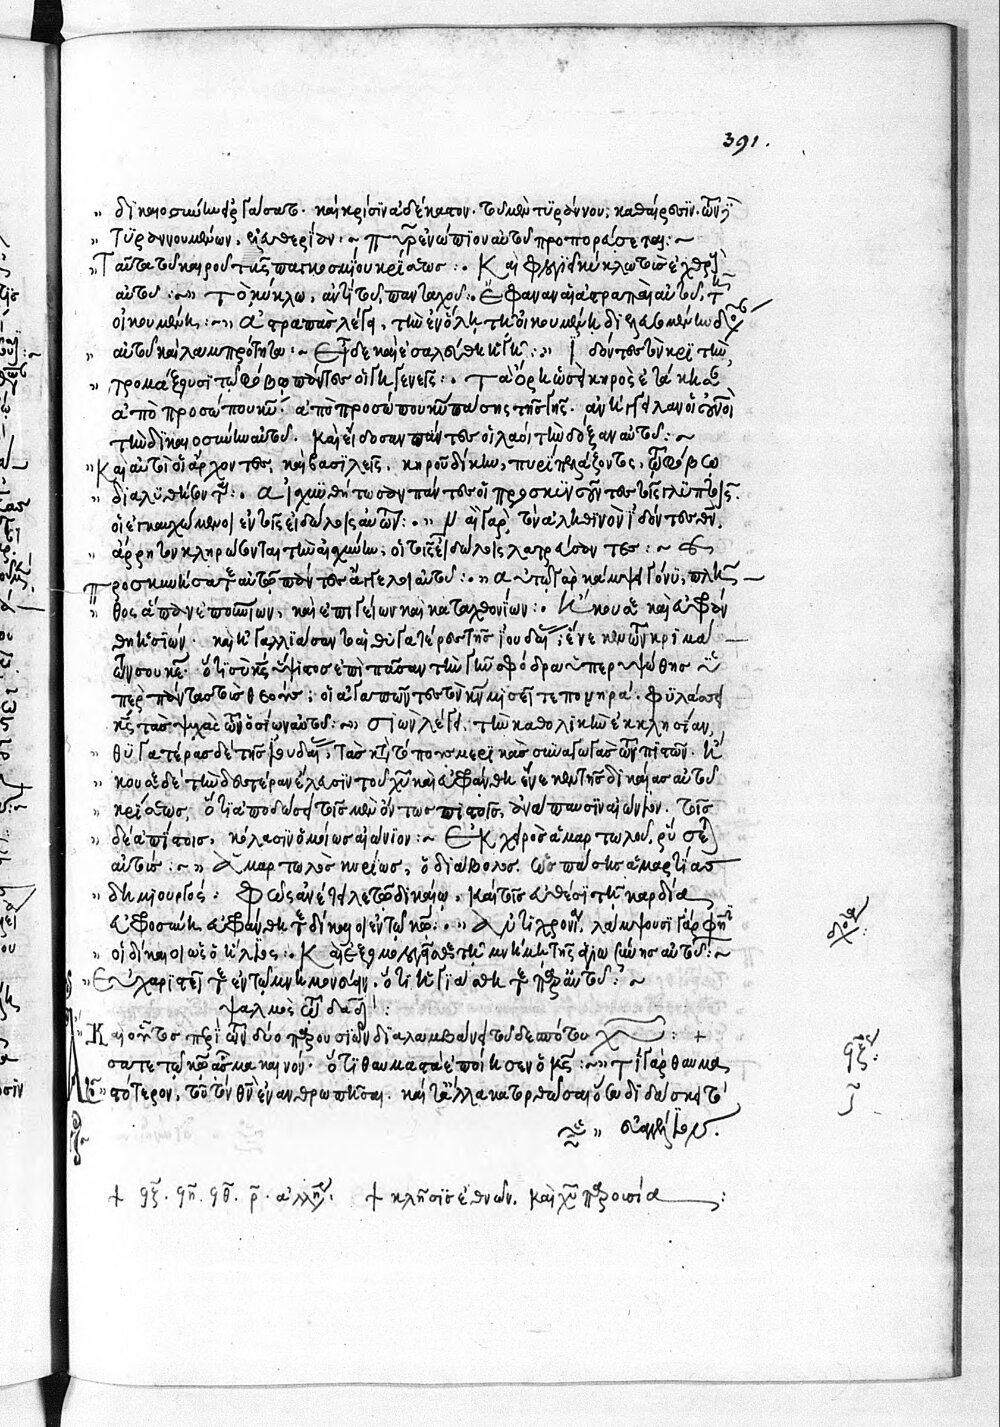 391.
δικαιοσύνην ἐργάσατο. καὶ κρίσιν ἀδέκαστον. τοῦ μὲν τυράννου, καθαίρεσιν. τῶν
τυραννουμένων, ἐλευθερίαν :~ Πῦρ ἐνώπιον αὐτοῦ προπορεύσεται :~
Ταῦτα τοῦ καιροῦ τῆς παγκοσμίου κρίσεως :. Καὶ φλογιεῖ κύκλῳ τοὺς ἐχθροὺς
αὐτοῦ :~ τὸ κύκλῳ, ἀντὶ τοῦ πανταχοῦ :. Ἔφαναν αἱ ἀστραπαὶ αὐτοῦ, τῇ
οἰκουμένῃ :~ ἀστραπὰς λέγει, τὴν ἐν ὅλῃ τῇ οἰκουμένῃ
αὐτοῦ καὶ λαμπρότητα :~ Εἶδε καὶ ἐσαλεύθη ἡ γῆ :~ ἰδόντες τὸν κριτὴν,
τρομάξουσι τῷ φόβῳ πάντες οἱ γηγενεῖς :. Τὰ ὄρη ὡσεὶ κηρὸς ἐτάκησαν
ἀπὸ προσώπου κυρίου. ἀπὸ προσώπου κυρίου πάσης τῆς γῆς. ἀνήγγειλαν οἱ οὐρανοὶ
τὴν δικαιοσύνην αὐτοῦ. καὶ εἴδοσαν πάντες οἱ λαοὶ τὴν δόξαν αὐτοῦ :~
Καὶ αὐτοὶ οἱ ἄρχοντες, καὶ βασιλεῖς, κηροῦ δίκην, πυρὶ πελάζοντες, τῷ φόβῳ
διαλυθήσονται :. Αἰσχυνθήτωσαν πάντες οἱ προσκυνοῦντες τοῖς γλυπτοῖς.
οἱ ἐγκαυχώμενοι ἐν τοῖς εἰδώλοις αὐτῶν :~ τὸν ἀληθινὸν ἰδόντες θεὸν,
ἄρρητον κληρώσονται τὴν αἰσχύνην, οἱ τοῖς εἰδώλοις λατρεύσαντες :~
Προσκυνήσατε αὐτῷ πάντες ἄγγελοι αὐτοῦ :. αὐτῷ γὰρ κάμψει γόνυ, πλῆ
θος ἅπαν ἐπουρανίων, καὶ ἐπιγείων καὶ καταχθονίων :. Ἤκουσε καὶ εὐφράν
θη ἡ σιών. καὶ ἠγαλλιάσαντο αἱ θυγατέρες τῆς ἰουδαίας, ἕνεκεν τῶν κριμά
των σου κύριε. ὅτι σὺ κύριος ὕψιστος ἐπὶ πᾶσαν τὴν γῆν σφόδρα ὑπερυψώθης ὑ
πὲρ πάντας τοὺς θεούς ; οἱ ἀγαπῶντες τὸν κύριον μισεῖτε πονηρά. φυλάσσει
κύριος τὰς ψυχὰς τῶν ὁσίων αὐτοῦ :~ σιὼν λέγει, τὴν καθολικὴν ἐκκλησίαν,
θυγατέρας δὲ τῆς ἰουδαίας, τὰς κατὰ τόπον μερικὰς συναγωγὰς τῶν πιστῶν. ἤ
κουσε δὲ τὴν δευτέραν ἔλευσιν τοῦ χριστοῦ καὶ εὐφράνθη ἕνεκεν τῆς δικαίας αὐτοῦ
κρίσεως, ὅτι ἀποδώσει τοῖς μὲν ὄντως πιστοῖς, ἀνάπαυσιν αἰώνιον. τοῖς
δὲ ἀπίστοις, κόλασιν ὁμοίως αἰώνιον :~ Ἐκ χειρὸς ἁμαρτωλοῦ, ῥύσεται
αὐτούς :~ Ἁμαρτωλὸς κυρίως, ὁ διάβολος. ὡς πάσης ἁμαρτίας
δημιουργός : Φῶς ἀνέτειλε τῷ δικαίῳ, καὶ τοῖς εὐθέσι τῇ καρδίᾳ
εὐφροσύνη εὐφράνθητε δίκαιοι ἐν τῷ κυρίῳ :. λάμψουσι γὰρ φησὶν
οἱ δίκαιοι ὡς ὁ ἥλιος :. Καὶ ἐξομολογεῖσθε τῇ μνήμῃ τῆς ἁγιωσύνης αὐτοῦ :~
Εὐχαριστεῖτε ἐν τῷ μνημονεύειν, ὅτι ἡγιάσθητε παρ' αὐτοῦ :~
ψαλμὸς τῷ δαυίδ :
Καὶ οὗτος περὶ τῶν δύο παρουσιῶν διαλαμβάνει τοῦ δεσπότου χριστοῦ : +
σατε τῷ κυρίῳ ἆσμα καινόν. ὅτι θαυμαστὰ ἐποίησεν ὁ κύριος :~ τί γὰρ θαυμα
στότερον, τοῦ τὸν θεὸν ἐνανθρωπῆσαι. καὶ τἄλλα κατορθῶσαι
+ ϟζ. ϟη. ϟθ. ρ. + κλῆσις ἐθνῶν. καὶ χριστοῦ παρουσία :
ϟζ :